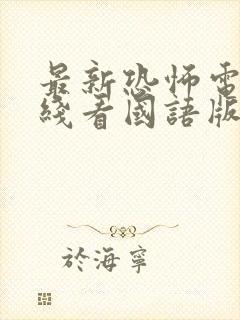 最新恐怖電
綫看國語版
於海寧